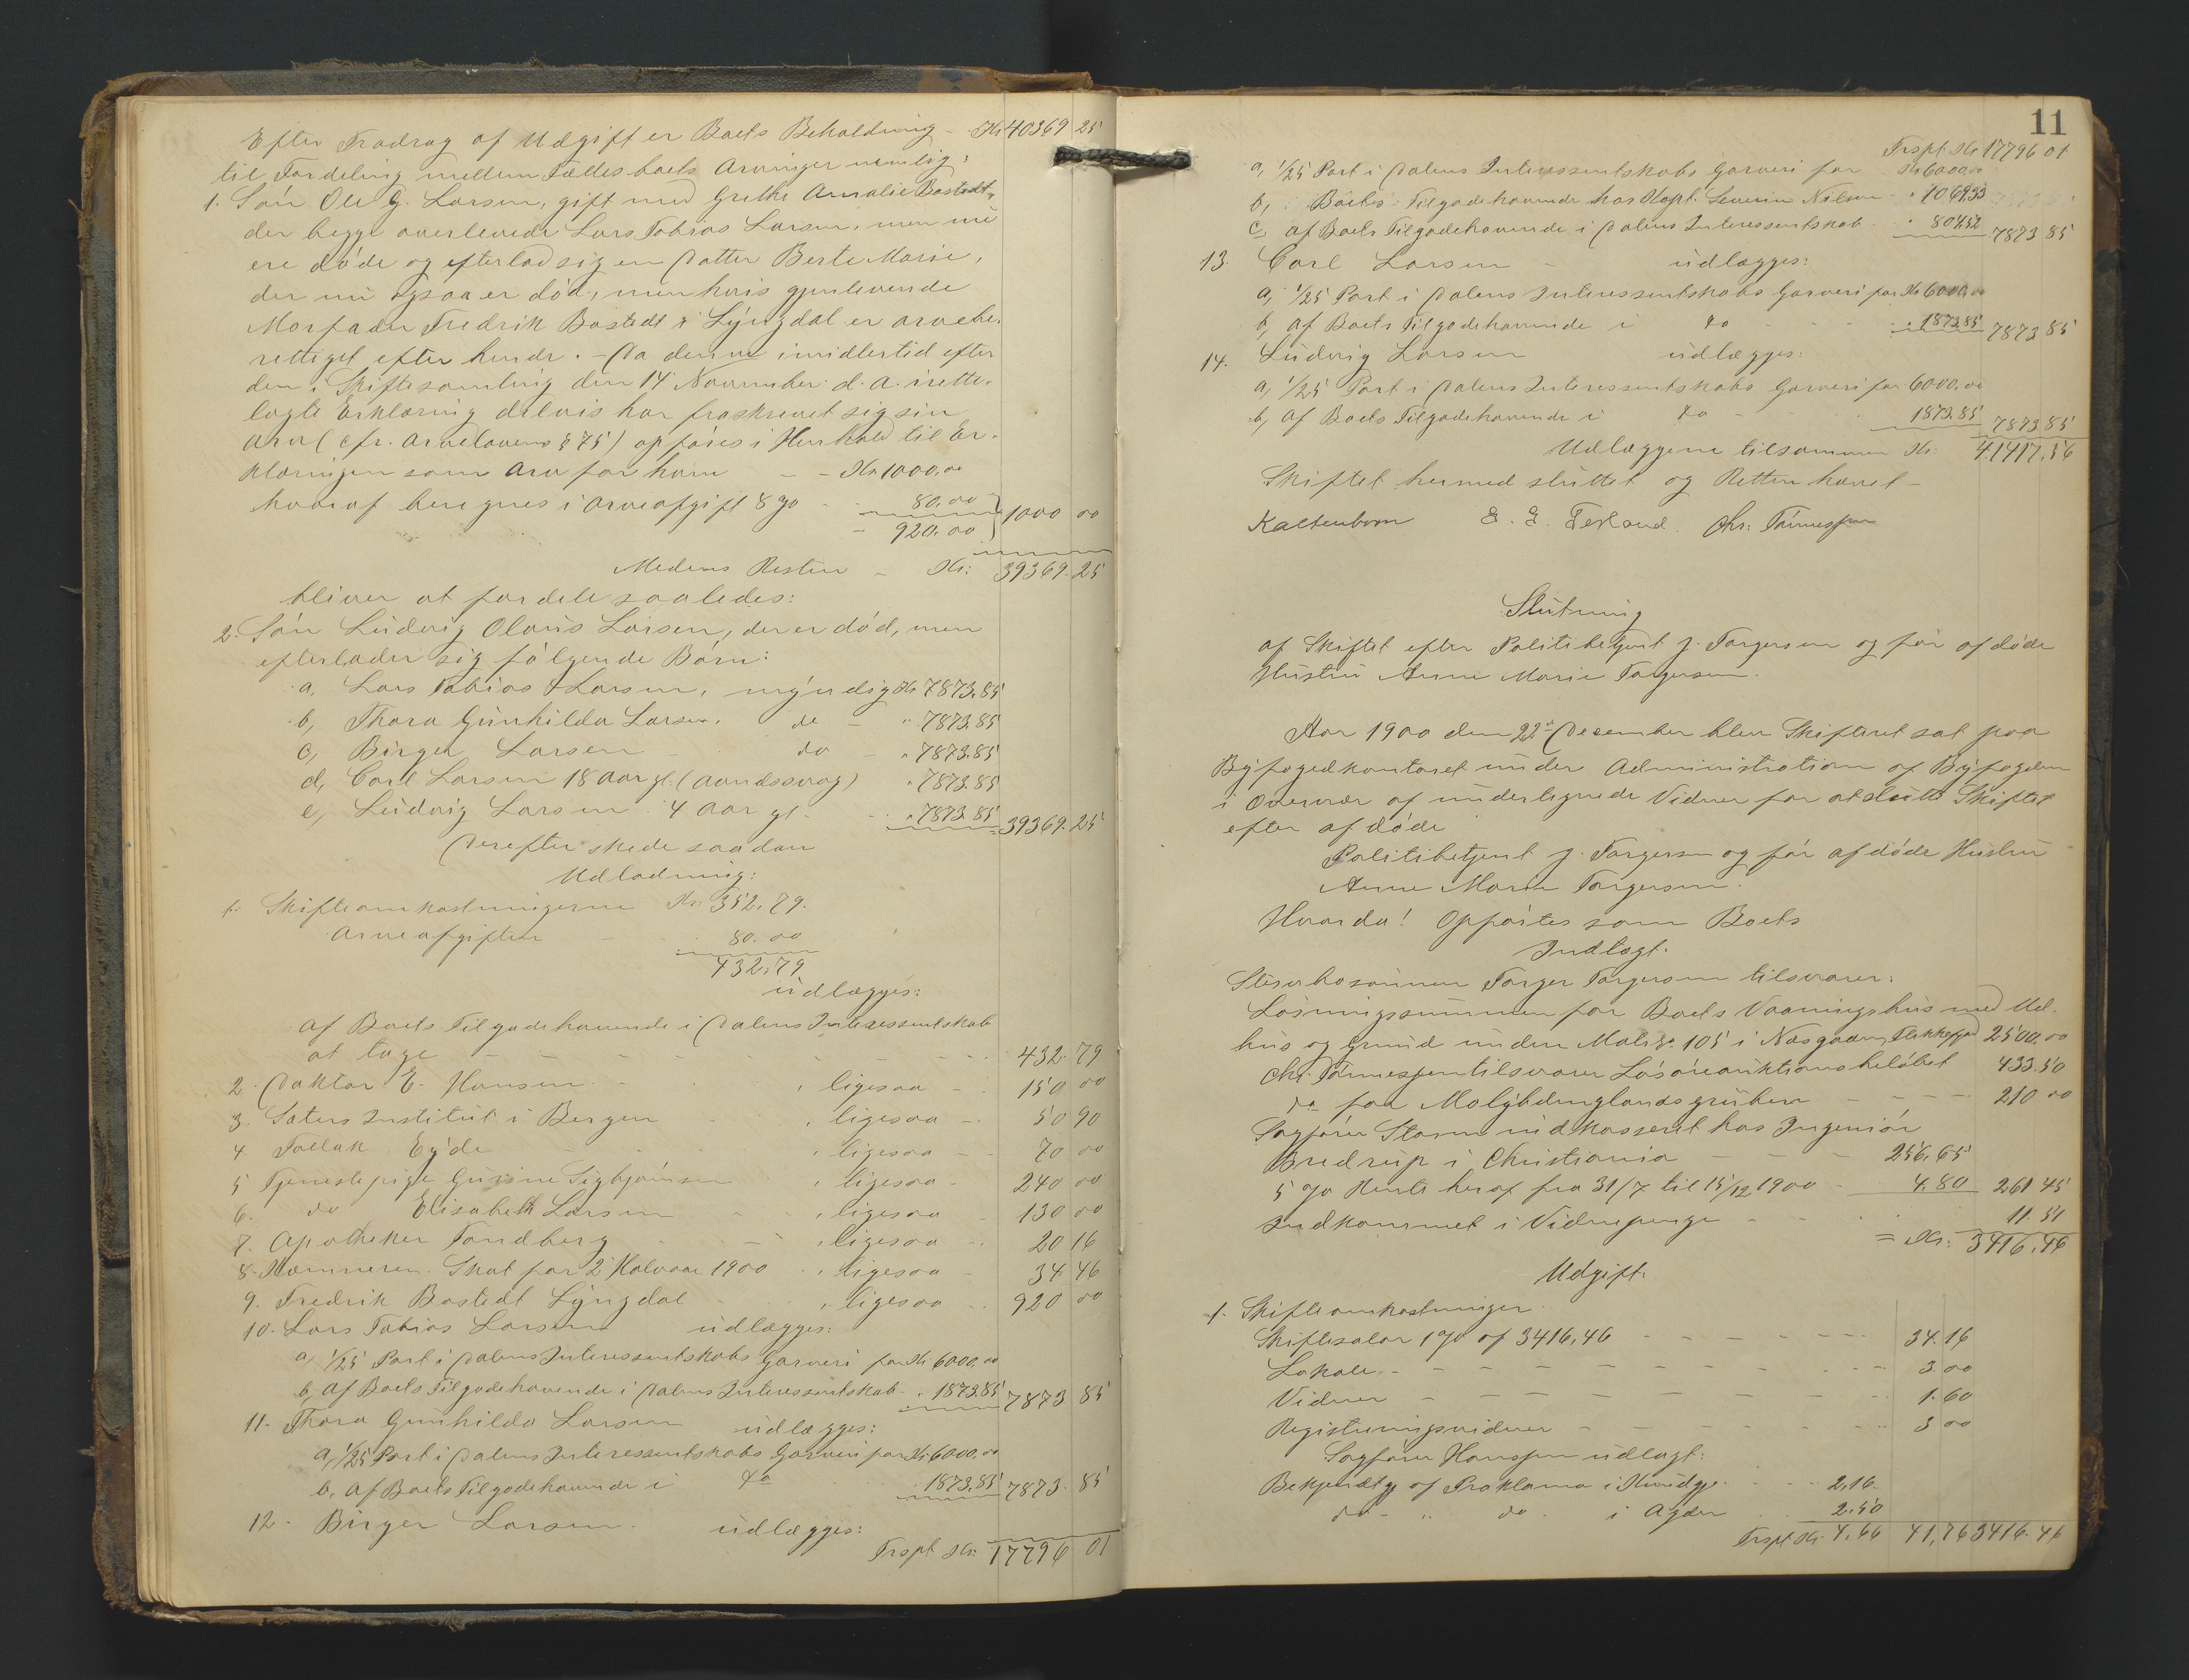 Efter Fradrag af Udgift er Boets Beholdning - Kr 40369 25
til Fordeling mellem Fællesboets Arvinger nemlig:
1. Søn Ole G. Larsen, gift med Grethe Amalie Bostedt,
der begge overlevede Lars Tobias Larsen, men nu
ere døde og efterlod sig en Datter Berte Marie,
der nu ogsaa er død, men hvis gjenlevende
Morfader Fredrik Bostedt i Lyngdal er arvebe-
rettiget efter hende. - Da denne imidlertid efter
den i Skiftesamling den 14 November d. A. irette-
lagte Erklæring delvis har fraskrevet sig sin
Arv (cfr. Arvelovens § 75) opføres i Henhold til Er-
klæringen som Arv for ham - - Kr. 1000,00
hvoraf beregnes i Arveafgift 8 % - 80,00
- 920.00 } 1000 00
Medens Resten - Kr: 39369.25
bliver at fordele saaledes:
2. Søn Ludvig Olaus Larsen, der er død, men
efterlader sig følgende Børn:
a, Lars Tobias Larsen, myndig Kr 7873.85
b, Thora Gunhilda Larsen, do - " 7873.85
c, Birger Larsen do - " 7873.85
d, Carl Larsen 18 Aar gl. (aandssvag) " 7873.85
e, Ludvig Larsen 4 Aar gl. - " 7873.85 = 39369.25
Derefter skede saadan
Udlodning:
1. Skifteomkostningerne Kr. 352,79.
Arveafgiften - 80.00
432.79
udlægges:
af Boets Tilgodehavende i Dalens Interessentskab
at tage - - - - - - 432.79
2. Doktor E. Hansen - , ligesaa - 150 00
3. Sæters Institut i Bergen , ligesaa - 50 90
4 Tollak Eyde , ligesaa - - 70 00
5 Tjenestepige Gurine Sigbjørnsen , ligesaa - 240 00
6. do Elisabeth Larsen - , ligesaa 130 00
7. Apotheker Tandberg - , ligesaa - 20 16
8. Kæmneren. Skat for 2 Halvaar 1900 , ligesaa 34 46
9. Fredrik Bostedt Lyngdal , ligesaa 920 00
10. Lars Tobias Larsen udlægges:
a, 1/25 Part i Dalens Interessentskabs Garveri for Kr 6000,00
b, Af Boets Tilgodehavende i Dalens Interessentskab - " 1873.85 7873 85
11. Thora Gunhilda Larsen udlægges:
a, 1/25 Part i Dalens Interessentskabs Garveri for Kr 6000,00
b, Af Boets Tilgodehavende i do 1873,85 7873. 85
12. Birger Larsen. udlægges:
Trspt Kr: 17796 01
11
Trspt. Kr 17796 01
a, 1/25 Part i Dalens Interessentskabs Garveri for Kr 6000,00
b, Boets Tilgodehavende hos Kapt. Severin Nilsen - " 1069.33
c, af Boets Tilgodehavende i Dalens Interessentskab " 804.52 7873 85
13. Carl Larsen - udlægges:
a, 1/25 Part i Dalens Interessentskabs Garveri for Kr 6000,00
b, af Boets Tilgodehavende i do - - " 1873.85 7873 85
14. Ludvig Larsen udlægges:
a, 1/25 Part i Dalens Interessentskabs Garveri for 6000,00
b, af Boets Tilgodehavende i do - 1873.85 7873 85
Udlæggene tilsammen Kr. 41417,56
Skiftet hermed sluttet og Retten hævet -
Kaltenborn E. E. Fesland Chr: Tönnessen
Slutning
af Skiftet efter Politibetjent J. Torgersen og før afdøde
Hustru Anne Marie Torgersen.
Aar 1900 den 22de December blev Skifteret sat paa
Byfogedkontoret under Administration af Byfogden
i Overvær af undertegnede Vidner for at slutte Skiftet
efter afdøde
Politibetjent J. Torgersen og før afdøde Hustru
Anne Marie Torgersen.
Hvorda! Opførtes som Boets
Indtægt.
Torger Torgersen tilsvarer:
Løsningssummen for Boets Vaaningshus med Ud-
hus og Grund under Matr. No. 105 i Næsgaden, Flekkefjord 2500,00
Chr. Tönnessen tilsvarer Løsøreauktionsbeløbet 433.50
do for Molybdænglandsgruben - - - - 210 00
Sagfører Storm indkasseret hos Ingeniør
Bredrup i Christiania - - - 256,65
5 % Rente heraf fra 31/7 til 15/12 1900 - 4.80 261 45
Indkommet i Vidnepenge - 11. 51
= Kr: 3416,46
Udgift.
1. Skifteomkostninger.
Skiftesalær 1 % af 3416,46 - - - - - - 34. 16
Lokale - - - - - - - - 3 00
Vidner - - - - - - - 1. 60
Registreringsvidner - - - - - - 3 00
Sagfører Hanssen udlagt:
Bekjendtg. af Proklama i Kundgj. - - 2,16.
do - " do . i Agder 2.50
Trspt Kr. 4,66 41,76 3416.46